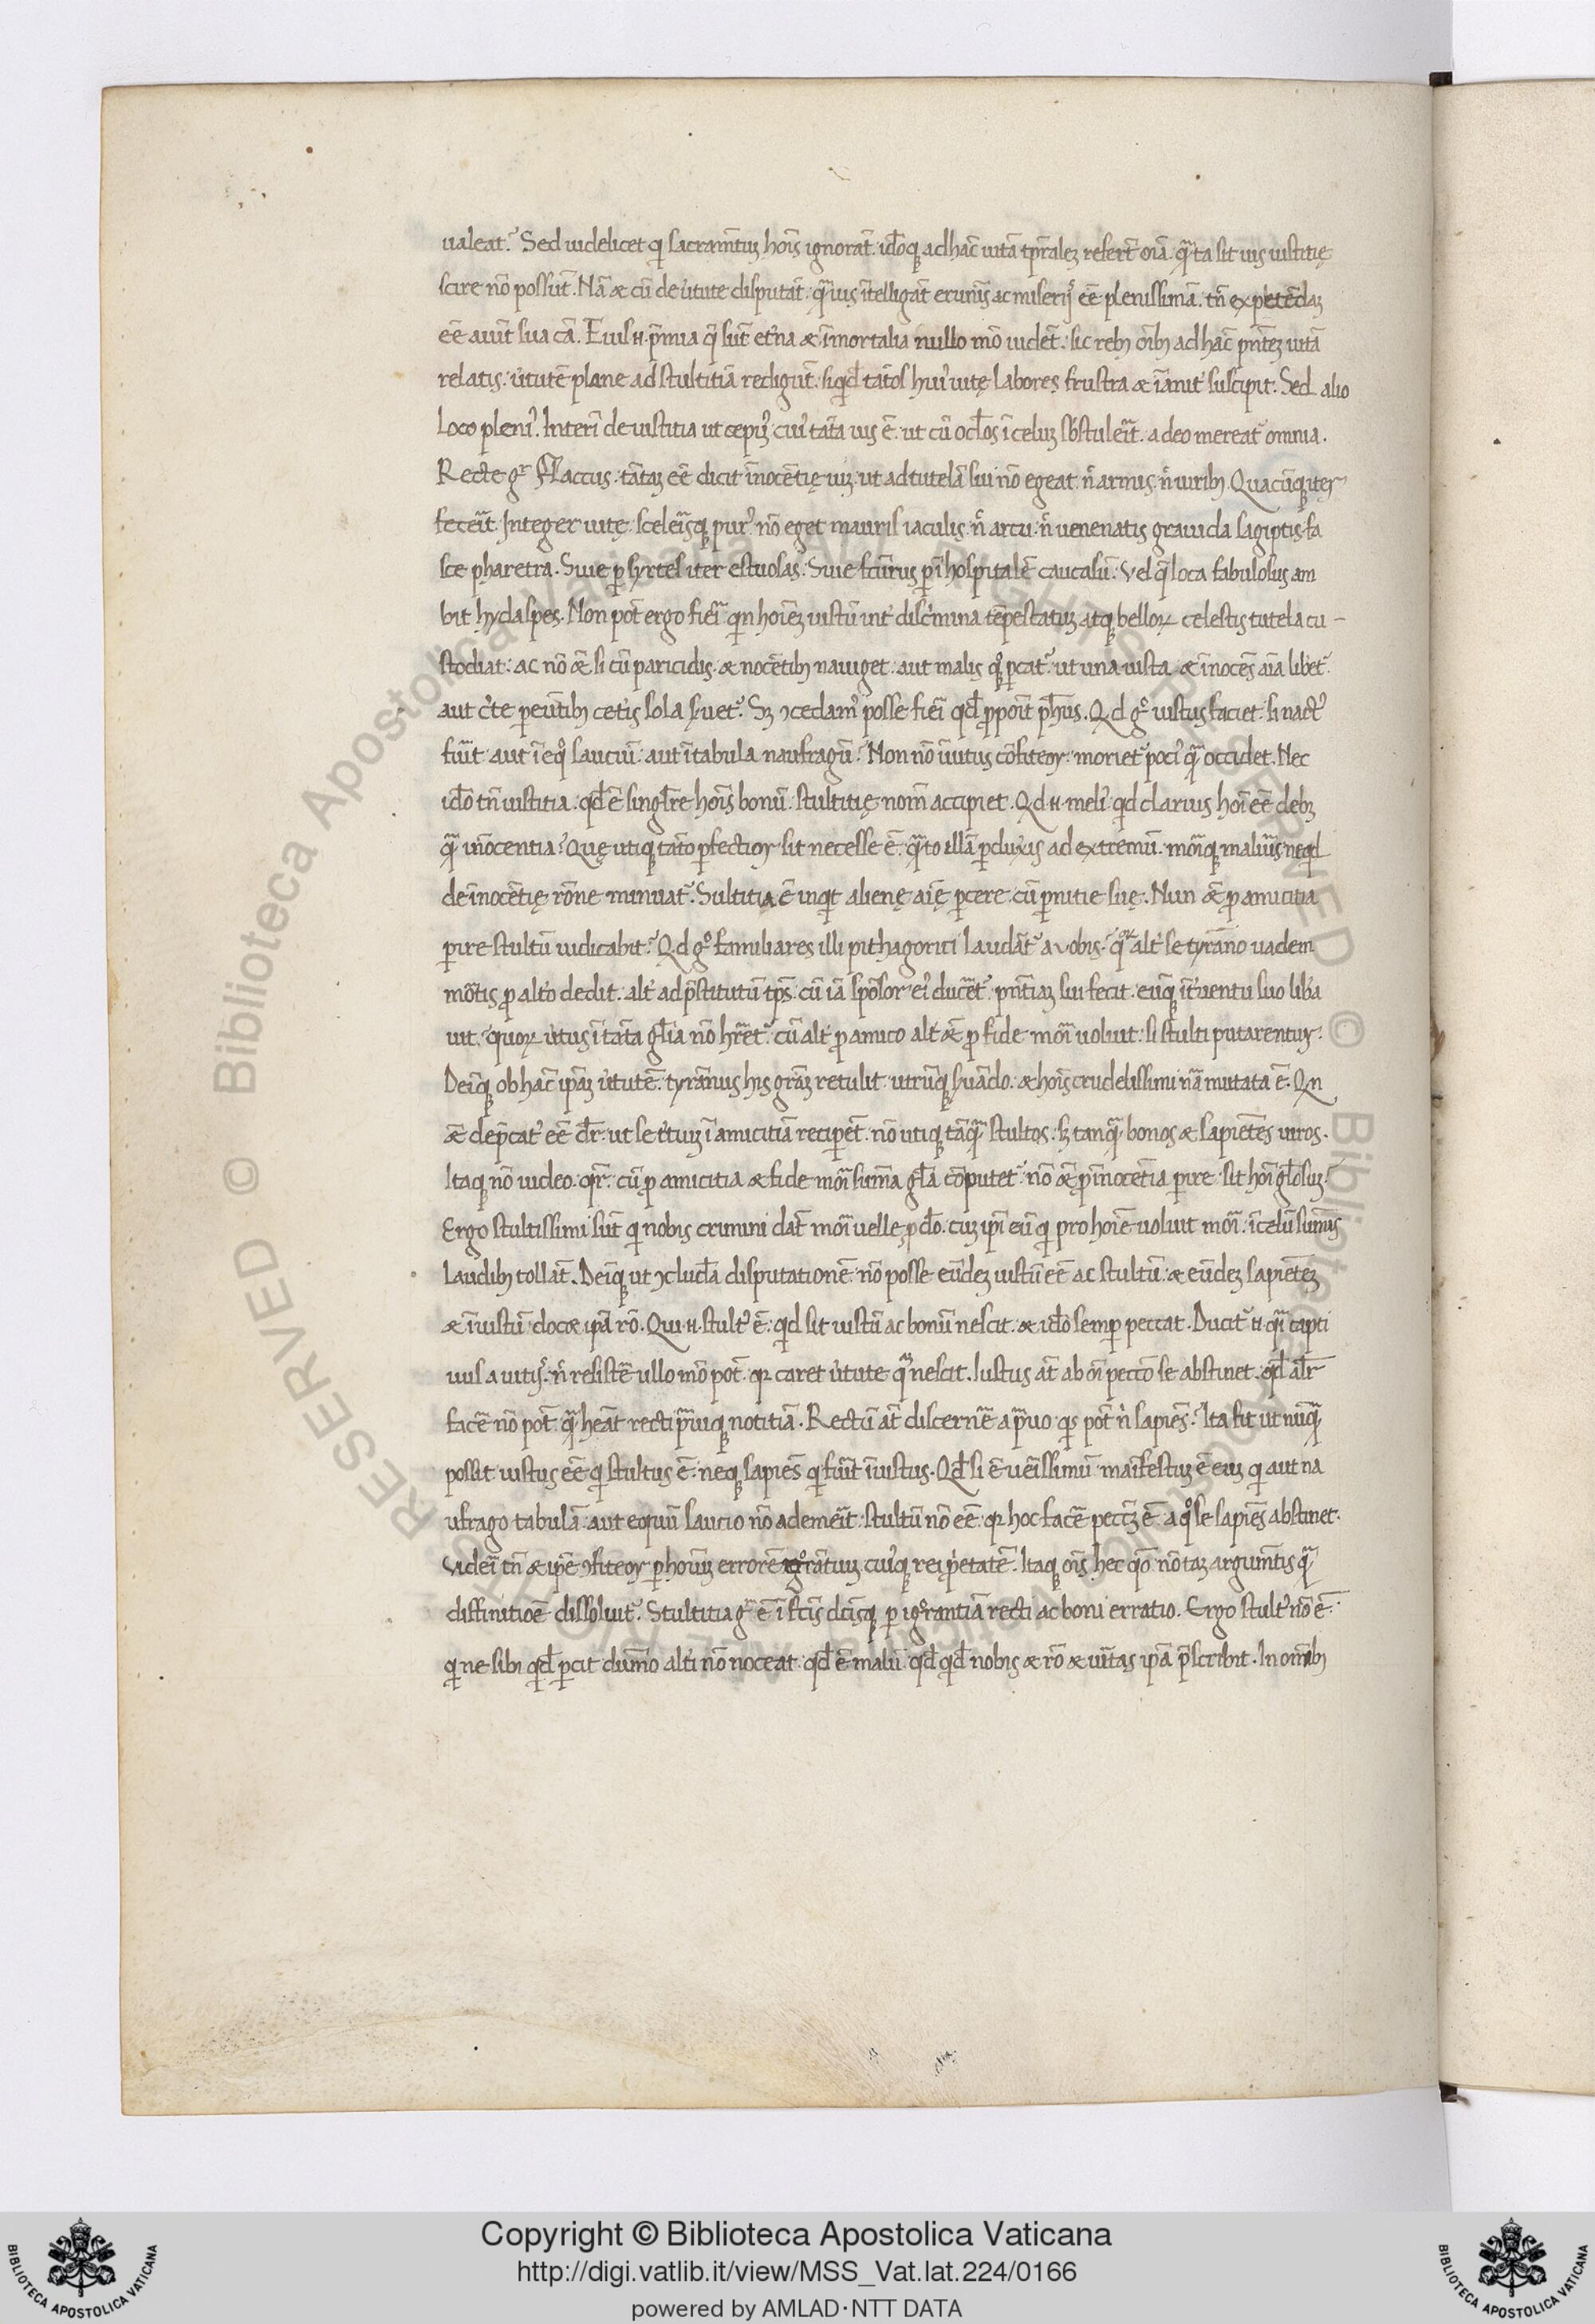 ualeat? Sed uidelicet qi sacram̄tuꝫ hoīs ignorāt. id̄oqꝫ ad hāc uitā tp̄raleꝫ refer̄t oīa. q̄ta sit uis iustitię
scire nō possūt. Nā & cū de ùtute disputāt. q̄uis ītelligāt erūnis ac miserijs eē plenissimā. tn̄ expetēdaꝫ
eē aiūt sua cā. Eius .n. p̄mia q̄ sūt et'na & īmortalia nullo mō uidēt. sic rebꝫ oībꝫ ad hāc pn̄teꝫ uitā
relatis. ùtutē plane ad stultitiā redigūt. siqd̄ tātos hui' uitę labores frustra & īanit' suscipit. Sed alio
loco pleni'. Interī de iustitia ut cepim'. cui' tāta uis ē. ut cū oc̄los ī celuꝫ sb̄stuler̄it. a deo mereat' omnia.
Recte gͬ Flaccus. tātaꝫ eē dicit īnocētię uiꝫ. ut ad tutelā sui nō egeat n̄ armis. n̄ uiribꝫ. Quacūqꝫ iter
fecer̄it. Integer uitę. scelerīsqꝫ pur' nō eget mauris iaculis. n̄ arcu. n̄ uenenatis grauida sagiptis fu
sce pharetra. Siue ꝑ syrtes iter estuosas. Siue fctūrus ꝑ īhospitalē caucasū. Vel q̄ loca fabulosus am
bit hydaspes. Non pōt ergo fierī qin hoīeꝫ iustū int' disc'mina tēpestatuꝫ atqꝫ belloꝝ celestis tutela cu-
stodiat. ac nō &̄ si cū paricidis. & nocētibꝫ nauiget. aut malis qͦqꝫ ꝑcat'. ut una iusta & īnocēs aīa libet'.
aut c'te peūtibꝫ cet'is sola suet'. Sꝫ ꝯcedam' posse fierī qd̄ ꝓpoīt ph̄us. Qd gͦ iustus faciet. si nact'
fūit aut ī eqͦ sauciū. aut ī tabula naufragū? Non nō īuitus cōfiteor. moriet' poci' q̄ occidet. Nec
id̄o tn̄ iustitia. qd̄ ē singl̄re hoīs bonū. stultitię nom̄ accipiet. Qd .n. meli' qd clarius hoī eē debꝫ
q̄ inōcentia? Quę utiqꝫ tāto ꝑfectior sit necesse ē. q̄to illā ꝑduxis ad extremū. morīqꝫ maluīs neqd
de īnocētię rōne minuat'. Sultitia ē inqt alienę aīę ꝑcere cū ꝑnitie suę. Nun &̄ ꝓ amicitia
ꝑire stultū iudicabit? Qd gͦ familiares illi pithagorici laudāt' a uobis? qͦꝝ alt' se tyrāno uadem
mōtis ꝓ alt'o dedit. alt' ad p̄stitutū tp̄s. cū iā spōsor ei' ducēt'. pn̄tiaꝫ sui fecit. eūqꝫ īt'uentu suo lib'a
uit. quoꝝ ùtus ī tāta gl̄ia nō hr̄et'. cū alt' ꝓ amico alt' &̄ ꝓ fide morī uoluit. si stulti putarentur.
Deīqꝫ ob hāc ip̄aꝫ ùtutē. tyrānus his grām retulit. utrūqꝫ suādo. & hoīs crudelissimi nā mutata ē. Qn
&̄ dep̄cat' eē dr̄. ut se t'tiuꝫ ī amicitiā reciperēt. nō utiqꝫ tāq̄ stultos. sꝫ tanq̄ bonos & sapiētes uiros.
Itaqꝫ nō uideo qr̄. cū ꝓ amicitia & fide morī sum̄a gl̄a cōputet'. nō &̄ ꝓ īnocētia ꝑire sit hoī gl̄osuꝫ.
Ergo stultissimi sūt qi nobis crimini dāt morī uelle ꝓ d̄o. cuꝫ ipī eū qi pro hoīe uoluit morī. ī celū sum̄is
laudibꝫ tollāt. Deīqꝫ ut ꝯclud̄a disputationē. nō posse eūdeꝫ iustū eē ac stultū. & eūdeꝫ sapiēteꝫ
& īiustū. doc& ip̄a rō. Qui .n. stult' ē. qd sit iustū ac bonū nescit. & id̄o semꝑ peccat. Ducit' .n. q̄i capti
uus a uitijs. n̄ resistē ullo mō pōt. qꝛ caret ùtute q̄ nescit. Iustus āt ab oī peccō se abstinet. qd̄ alr̄
facē nō pōt q̄ heāt recti p̄uiqꝫ notitiā. Rectū āt discernē a p̄uo qs pōt n̄ sapiēs? Ita fit ut nūq̄
possit iustus eē qi stultus ē. neqꝫ sapiēs qi fūit īiustus. Qd̄ si ē uerīssimū. maīfestuꝫ ē euꝫ qi aut na
ufrago tabulā. aut equū saucio nō ademer̄it. stultū nō eē. qꝛ hoc facē peccm̄ ē. a qͦ se sapiēs abstinet.
Viderī tn̄ & ip̄e ꝯfiteor ꝑ hoīuꝫ errorē igͦrātiuꝫ cui'qꝫ rei p'etatē. Itaqꝫ oīs hec qō nō taꝫ argum̄tis q̄
diffinitioē dissoluit'. Stultitia gͬ ē ī fctīs dctīsqꝫ ꝑ igͦrantiā recti ac boni erratio. Ergo stult' nō ē.
qi ne sibi qd̄ ꝑcit dūmō alt'i nō noceat qd̄ ē malū. qd̄ qd̄ nobis & rō & uer̄itas ip̄a p̄scribit. In omībꝫ
Copyright © Biblioteca Apostolica Vaticana
http://digi.vatlib.it/view/MSS_Vat.lat.224/0166
powered by AMLAD·NTT DATA